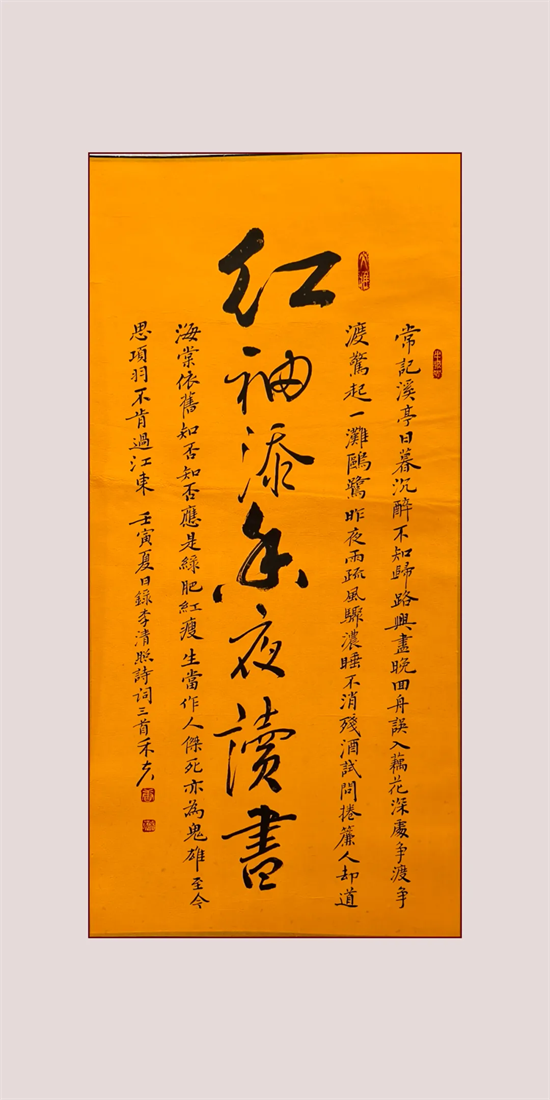 红袖添香夜讀書
常記溪亭日暮沉醉不知歸路興盡晚囬舟誤入藕花深處争渡争
渡驚起一灘鷗鷺昨夜雨疏風驟濃睡不消殘酒試問捲簾人却道
海棠依舊知否知否應是緑肥紅瘦生當作人傑死亦為鬼雄至今
思項羽不肯過江東 壬寅夏日錄李清照詩词三首禾